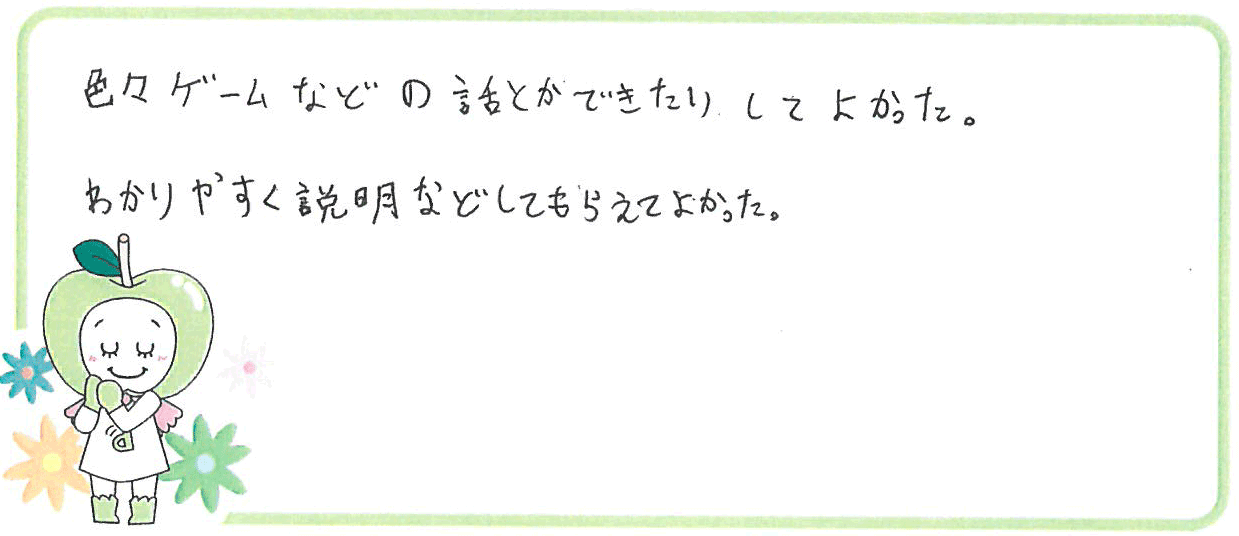 色々ゲームなどの話とかできたりしてよかった。
わかりやすく説明などしてもらえてよかった。